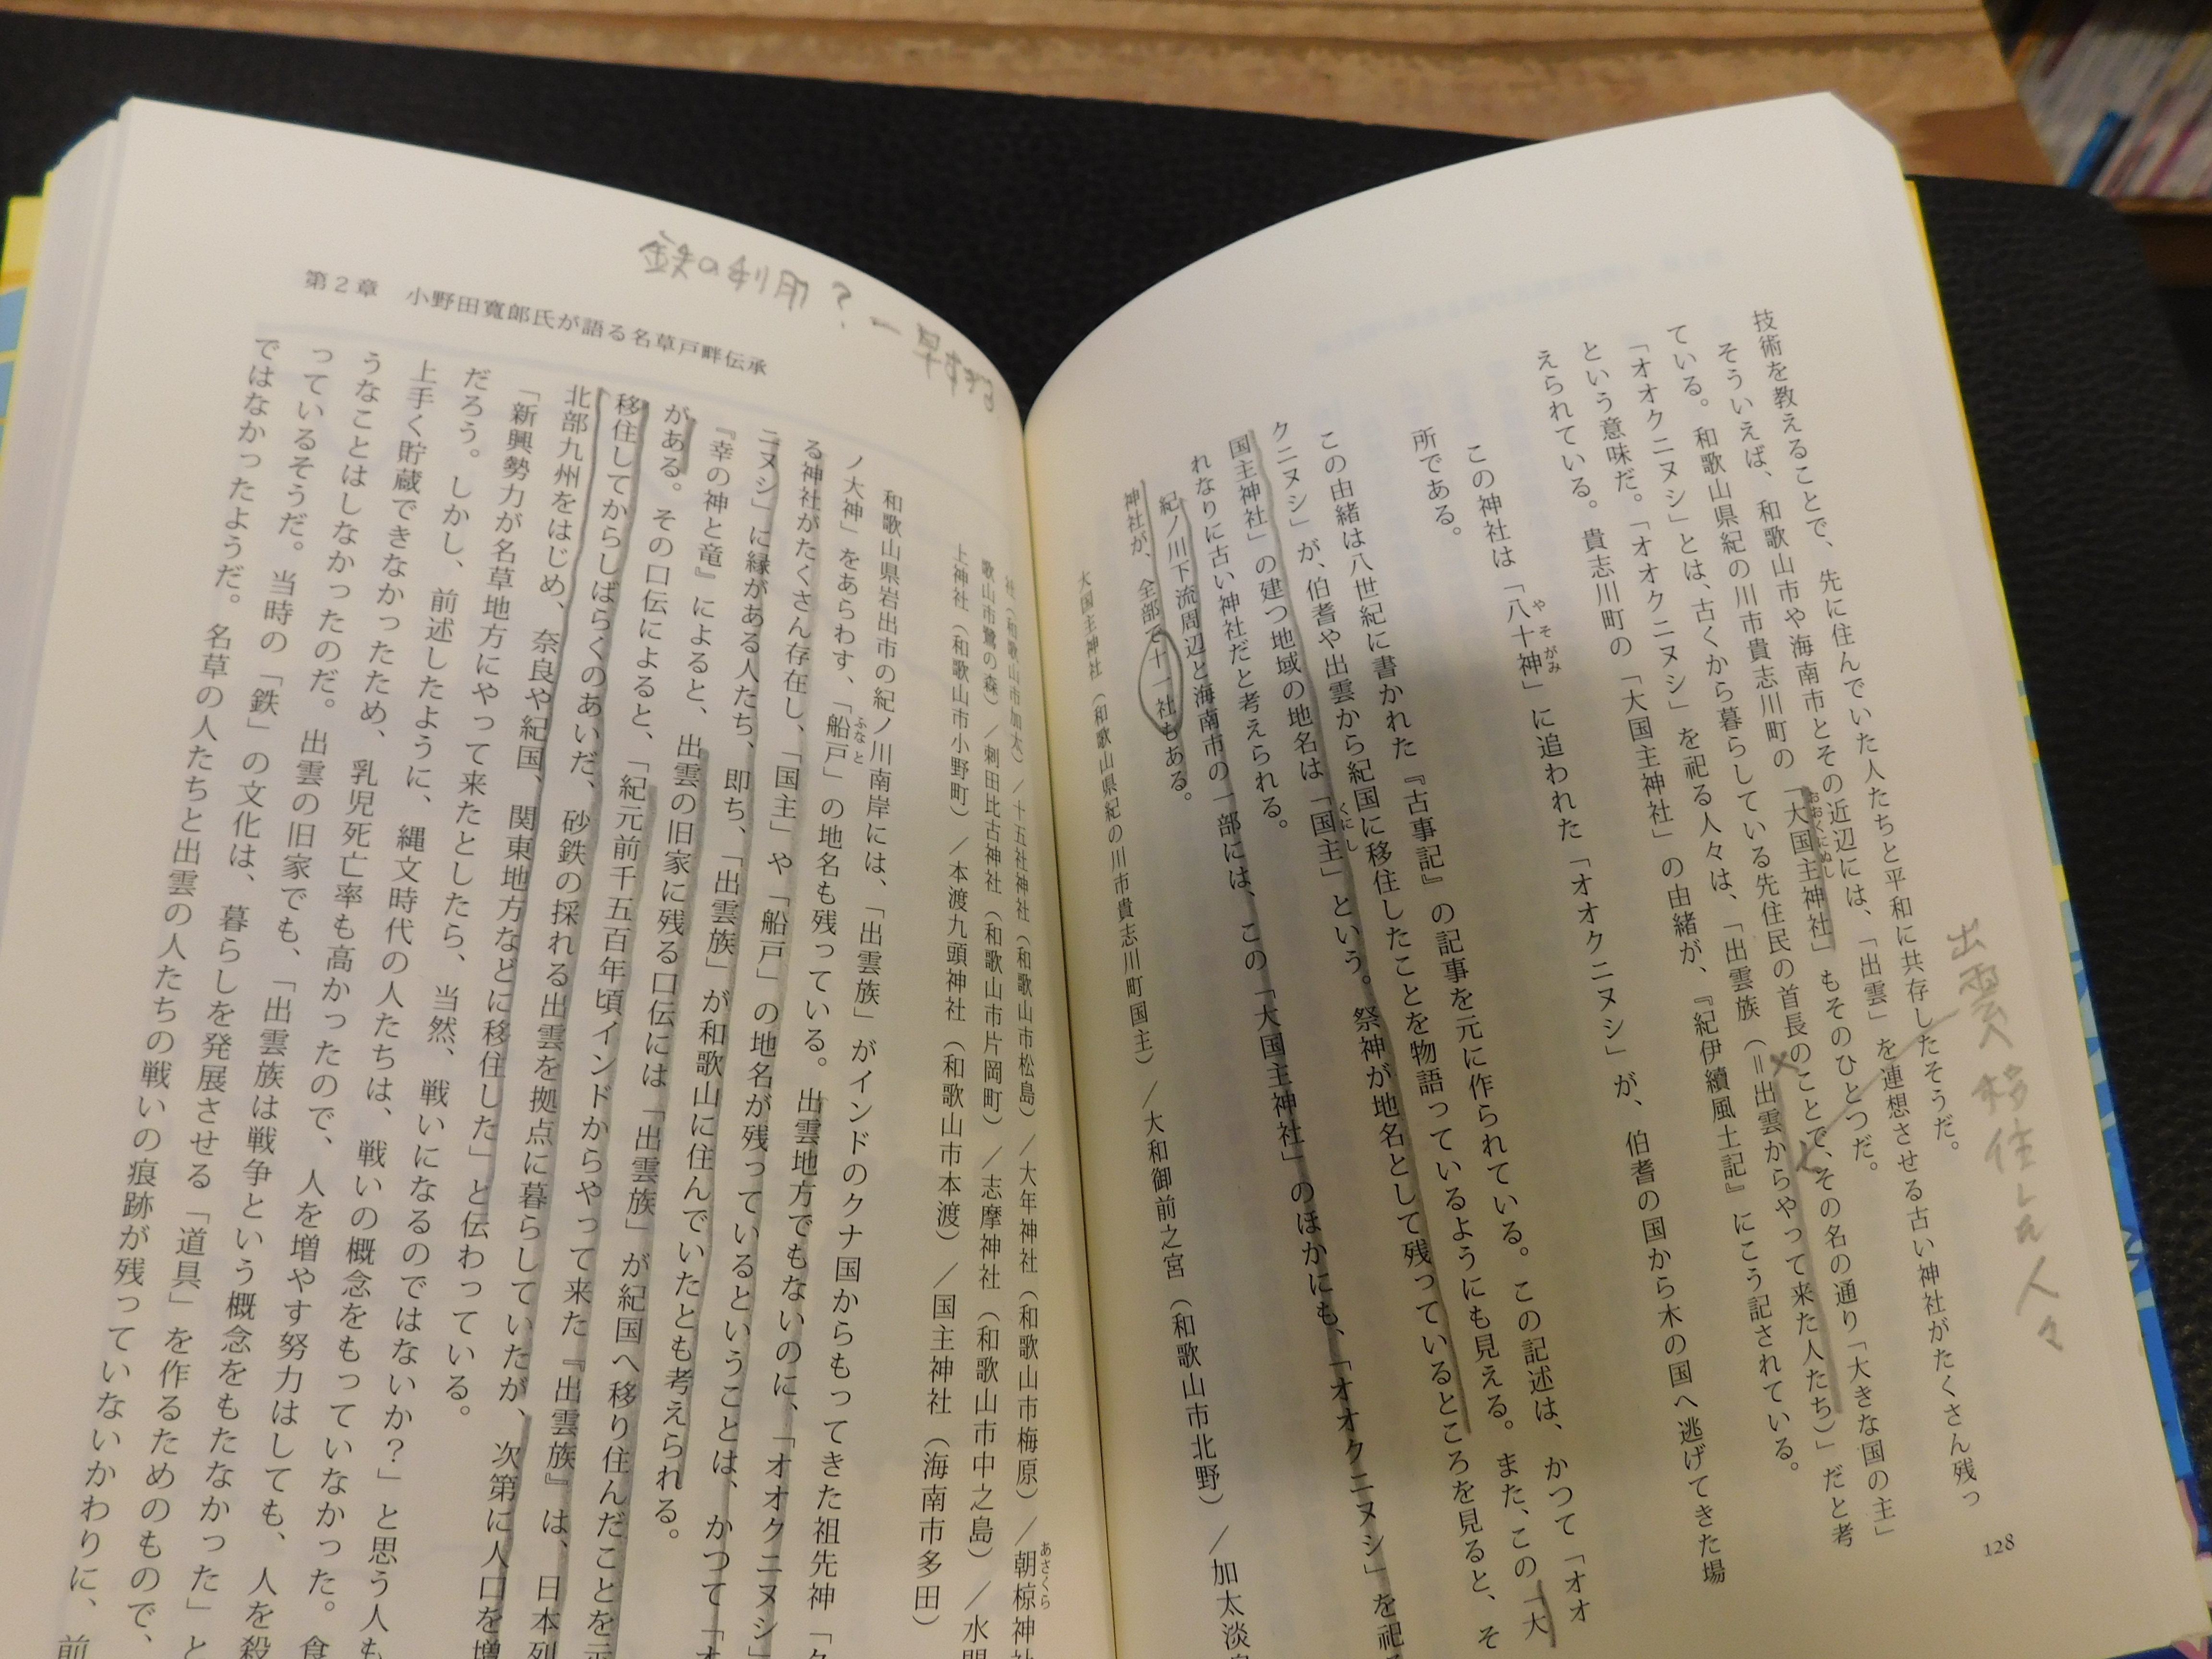 技術を教えることで、先に住んでいた人たちと平和に共存したそうだ。
そういえば、和歌山市や海南市とその近辺には、「出雲」を連想させる古い神社がたくさん残っ
ている。和歌山県紀の川市貴志川町の「大国主神社」もそのひとつだ。
おおくにぬし
「オオクニヌシ」とは、古くから暮らしている先住民の首長のことで、その名の通り「大きな国の主」
という意味だ。「オオクニヌシ」を祀る人々は、「出雲族（＝出雲からやって来た人たち）」だと考
えられている。貴志川町の「大国主神社」の由緒が、『紀伊續風土記』にこう記されている。
この神社は「八十神」に追われた「オオクニヌシ」が、伯耆の国から木の国へ逃げてきた場
やそがみ
所である。
この由緒は八世紀に書かれた『古事記』の記事を元に作られている。この記述は、かつて「オオ
クニヌシ」が、伯耆や出雲から紀国に移住したことを物語っているようにも見える。また、この「大
国主神社」の建つ地域の地名は「国主」という。祭神が地名として残っているところを見ると、そ
くにし
れなりに古い神社だと考えられる。
紀ノ川下流周辺と海南市の一部には、この「大国主神社」のほかにも、「オオクニヌシ」を祀
神社が、全部で十一社もある。
大国主神社（和歌山県紀の川市貴志川町国主）／大和御前之宮（和歌山市北野）／加太淡
128
出雲 移住した人々
鉄の利用？ー早すぎる
第2章　小野田寛郎氏が語る名草戸畔伝承
社（和歌山市加太）／十五社神社（和歌山市松島）／大年神社（和歌山市梅原）／朝椋神
あさくら
歌山市鷺の森）／刺田比古神社（和歌山市片岡町）／志摩神社（和歌山市中之島）／水門
上神社（和歌山市小野町）／本渡九頭神社（和歌山市本渡）／国主神社（海南市多田）
和歌山県岩出市の紀ノ川南岸には、「出雲族」がインドのクナ国からもってきた祖先神「ク
ノ大神」をあらわす、「船戸」の地名も残っている。出雲地方でもないのに、「オオクニヌシ」
ふなと
る神社がたくさん存在し、「国主」や「船戸」の地名が残っているということは、かつて「オ
ニヌシ」に縁がある人たち、即ち、「出雲族」が和歌山に住んでいたとも考えられる。
『幸の神と竜』によると、出雲の旧家に残る口伝には「出雲族」が紀国へ移り住んだことを示
がある。その口伝によると、「紀元前千五百年頃インドからやって来た『出雲族』は、日本列
移住してからしばらくのあいだ、砂鉄の採れる出雲を拠点に暮らしていたが、次第に人口を増
北部九州をはじめ、奈良や紀国、関東地方などに移住した」と伝わっている。
「新興勢力が名草地方にやって来たとしたら、当然、戦いになるのではないか？」と思う人も
だろう。しかし、前述したように、縄文時代の人たちは、戦いの概念をもっていなかった。食
上手く貯蔵できなかったため、乳児死亡率も高かったので、人を増やす努力はしても、人を殺
うなことはしなかったのだ。出雲の旧家でも、「出雲族は戦争という概念をもたなかった」と
っているそうだ。当時の「鉄」の文化は、暮らしを発展させる「道具」を作るためのもので、
ではなかったようだ。名草の人たちと出雲の人たちの戦いの痕跡が残っていないかわりに、前